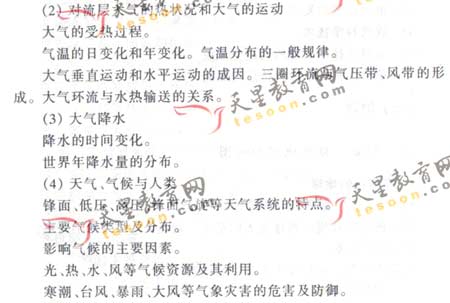 (2) 对流层大气的热状况和大气的运动
大气的受热过程。
气温的日变化和年变化。气温分布的一般规律。
大气垂直运动和水平运动的成因。三圈环流与气压带、风带的形
成。大气环流与水热输送的关系。
(3) 大气降水
降水的时间变化。
世界年降水量的分布。
(4) 天气、气候与人类
锋面、低压、高压、锋面气旋等天气系统的特点。
主要气候类型及分布。
影响气候的主要因素。
光、热、水、风等气候资源及其利用。
寒潮、台风、暴雨、大风等气象灾害的危害及防御。
天星教育网
tesoon.com
天星教育网
tesoon.com
天星教育网
tesoon.com
天星教育网
tesoon.com